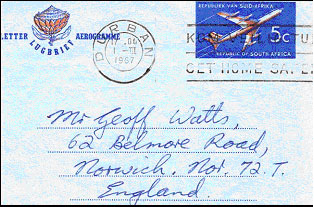 REPUBLIEK VAN SUID-AFRIKA
5c
REPUBLIC OF SOUTH AFRICA
LETTER AEROGRAMME
LUGBRIEF
DURBAN
1967
GET HOME
Mr Geoff Watts,
62 Belmore Road,
Norwich, Nor. 72.T.
England